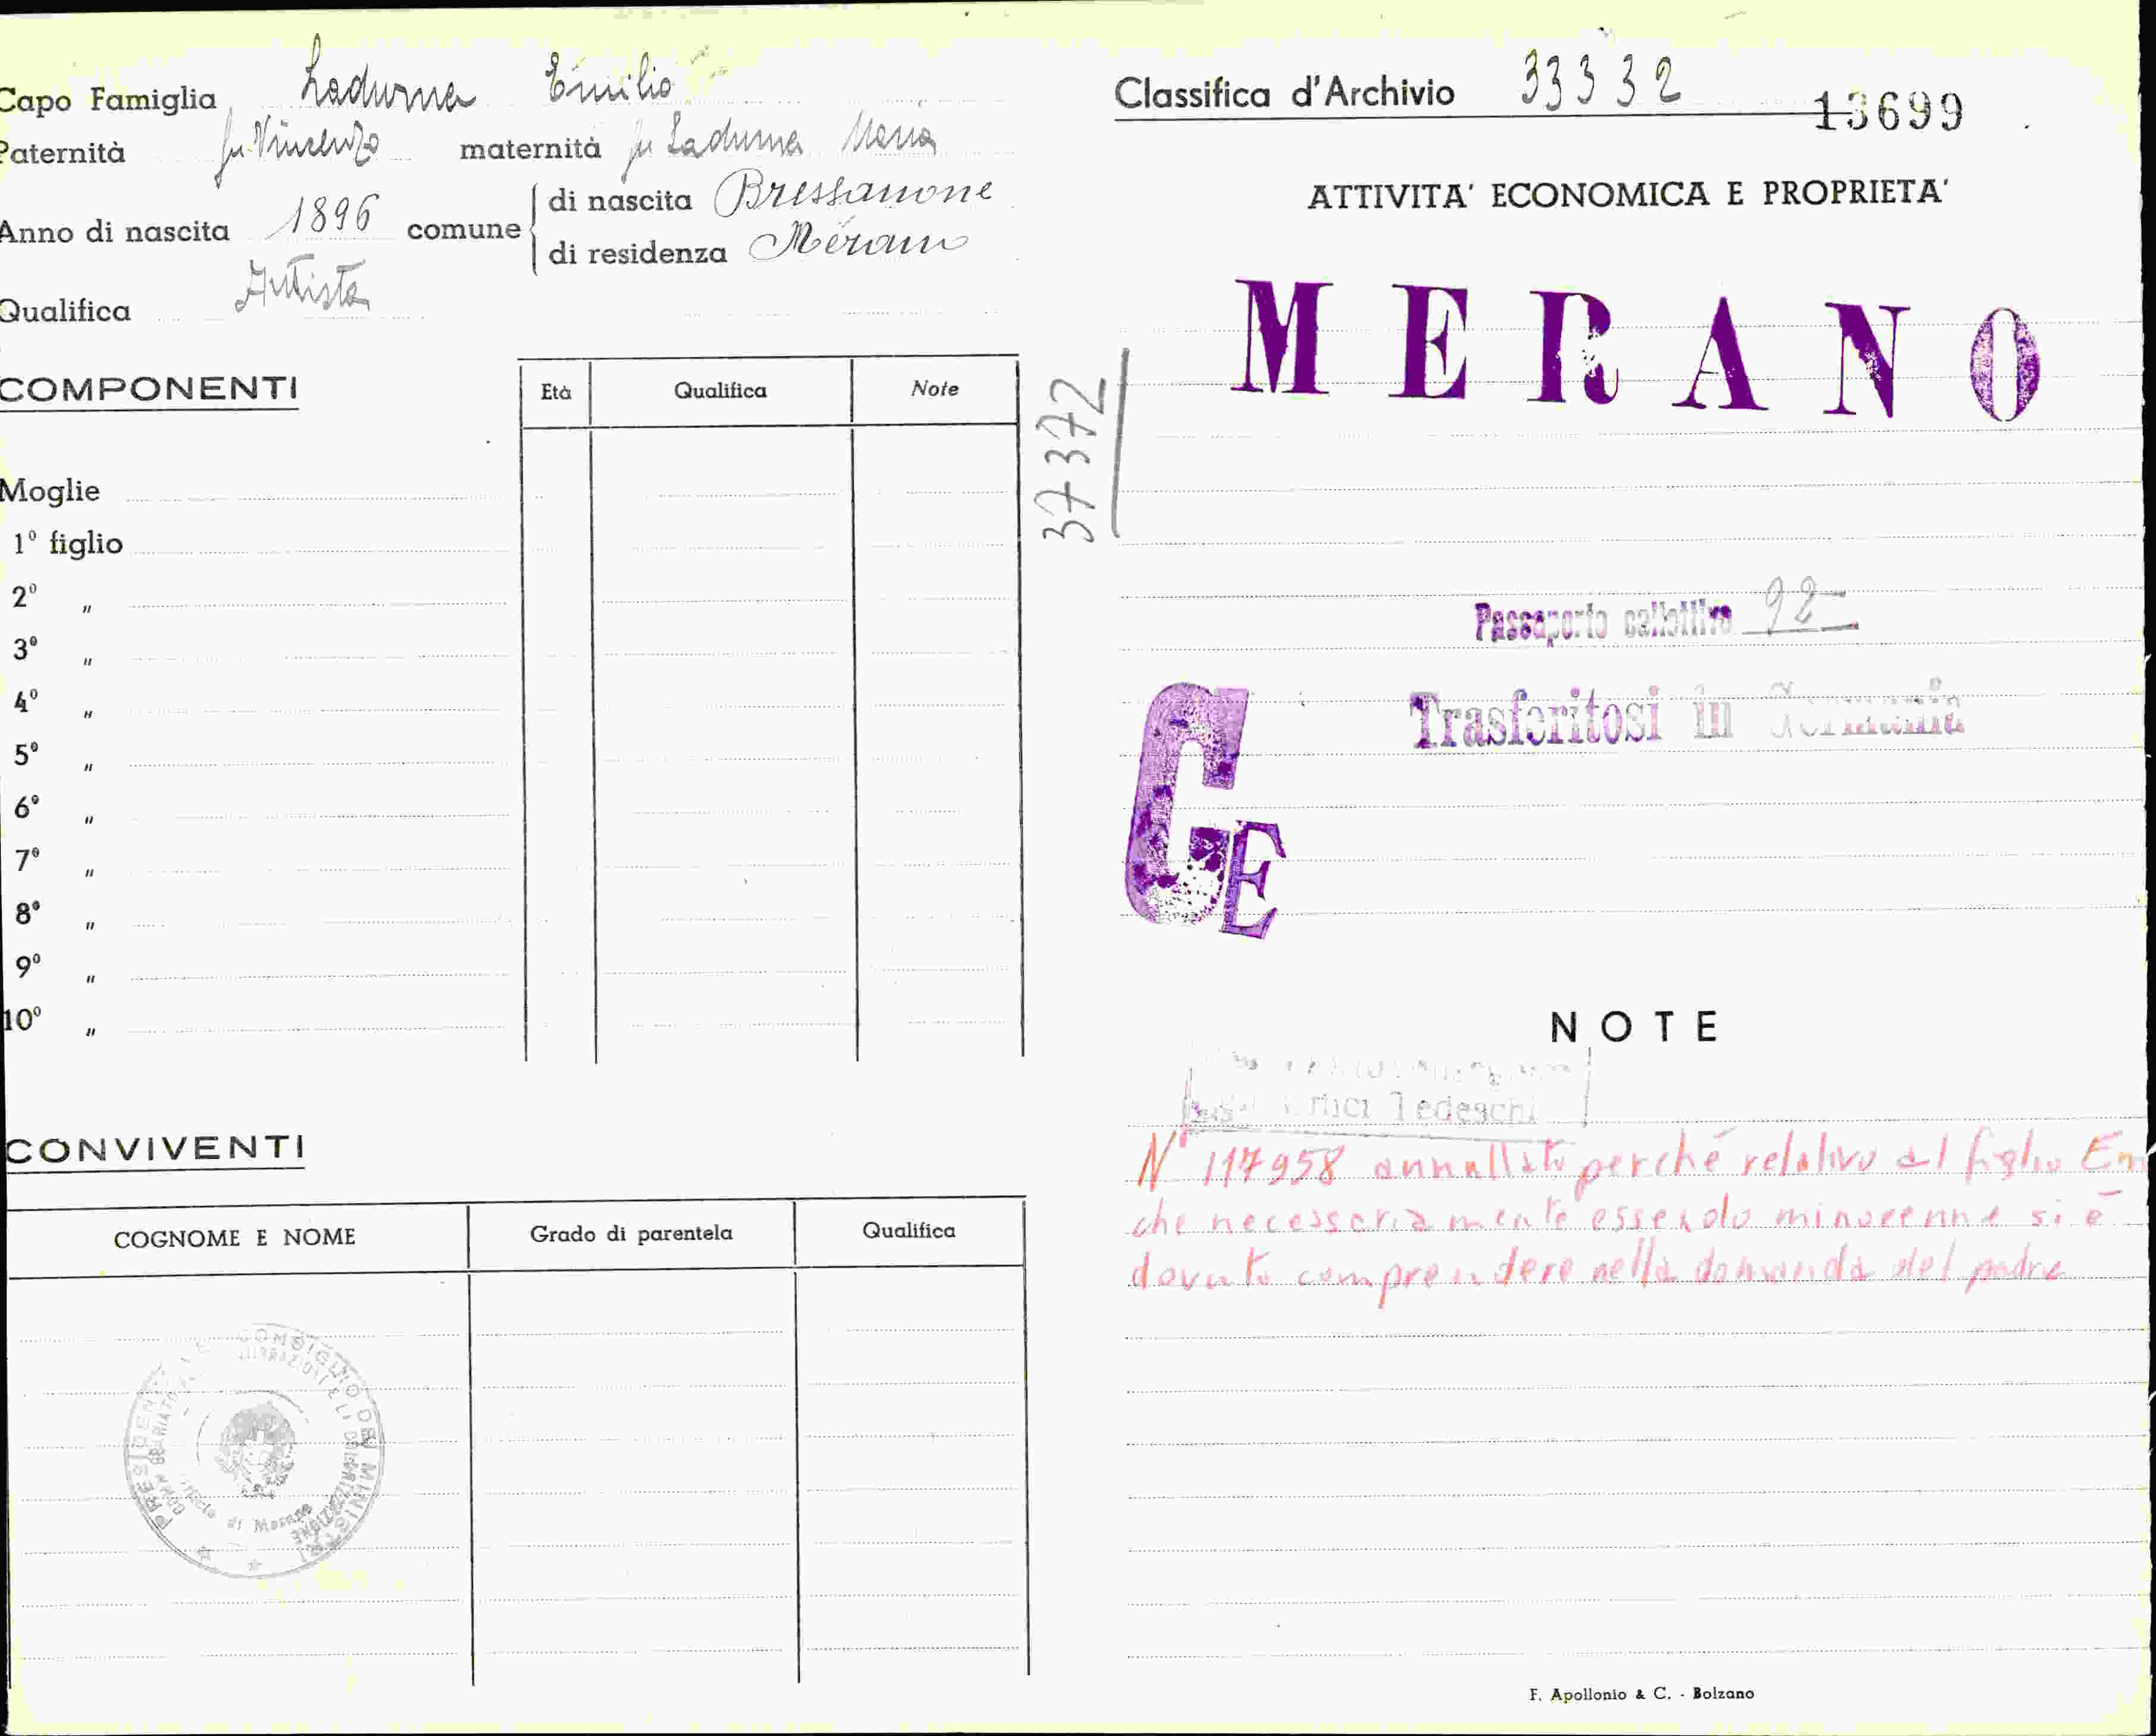 Capo Famiglia Ladurna Emilio
Paternità fu Vincenzo maternità fu Ladurna Maria
Anno di nascita 1896 comune di nascita Bressanone
di residenza Merano
Qualifica Autista
COMPONENTI
Età Qualifica Note
Moglie
1º figlio
2º "
3º "
4º "
5º "
6º "
7º "
8º "
9º "
10º "
CONVIVENTI
COGNOME E NOME Grado di parentela Qualifica
PRESIDENZA DEL CONSIGLIO DEI MINISTRI
di Merano
37372
Classifica d'Archivio 33332
13699
ATTIVITA' ECONOMICA E PROPRIETA'
MERANO
Passaporto collettivo 92
Trasferitosi in Germania
GE
NOTE
Tedeschi
Nº 117958 annullato perché relativo al figlio Em
che necessariamente essendo minorenne si è
dovuto comprendere nella domanda del padre
F. Apollonio & C. - Bolzano